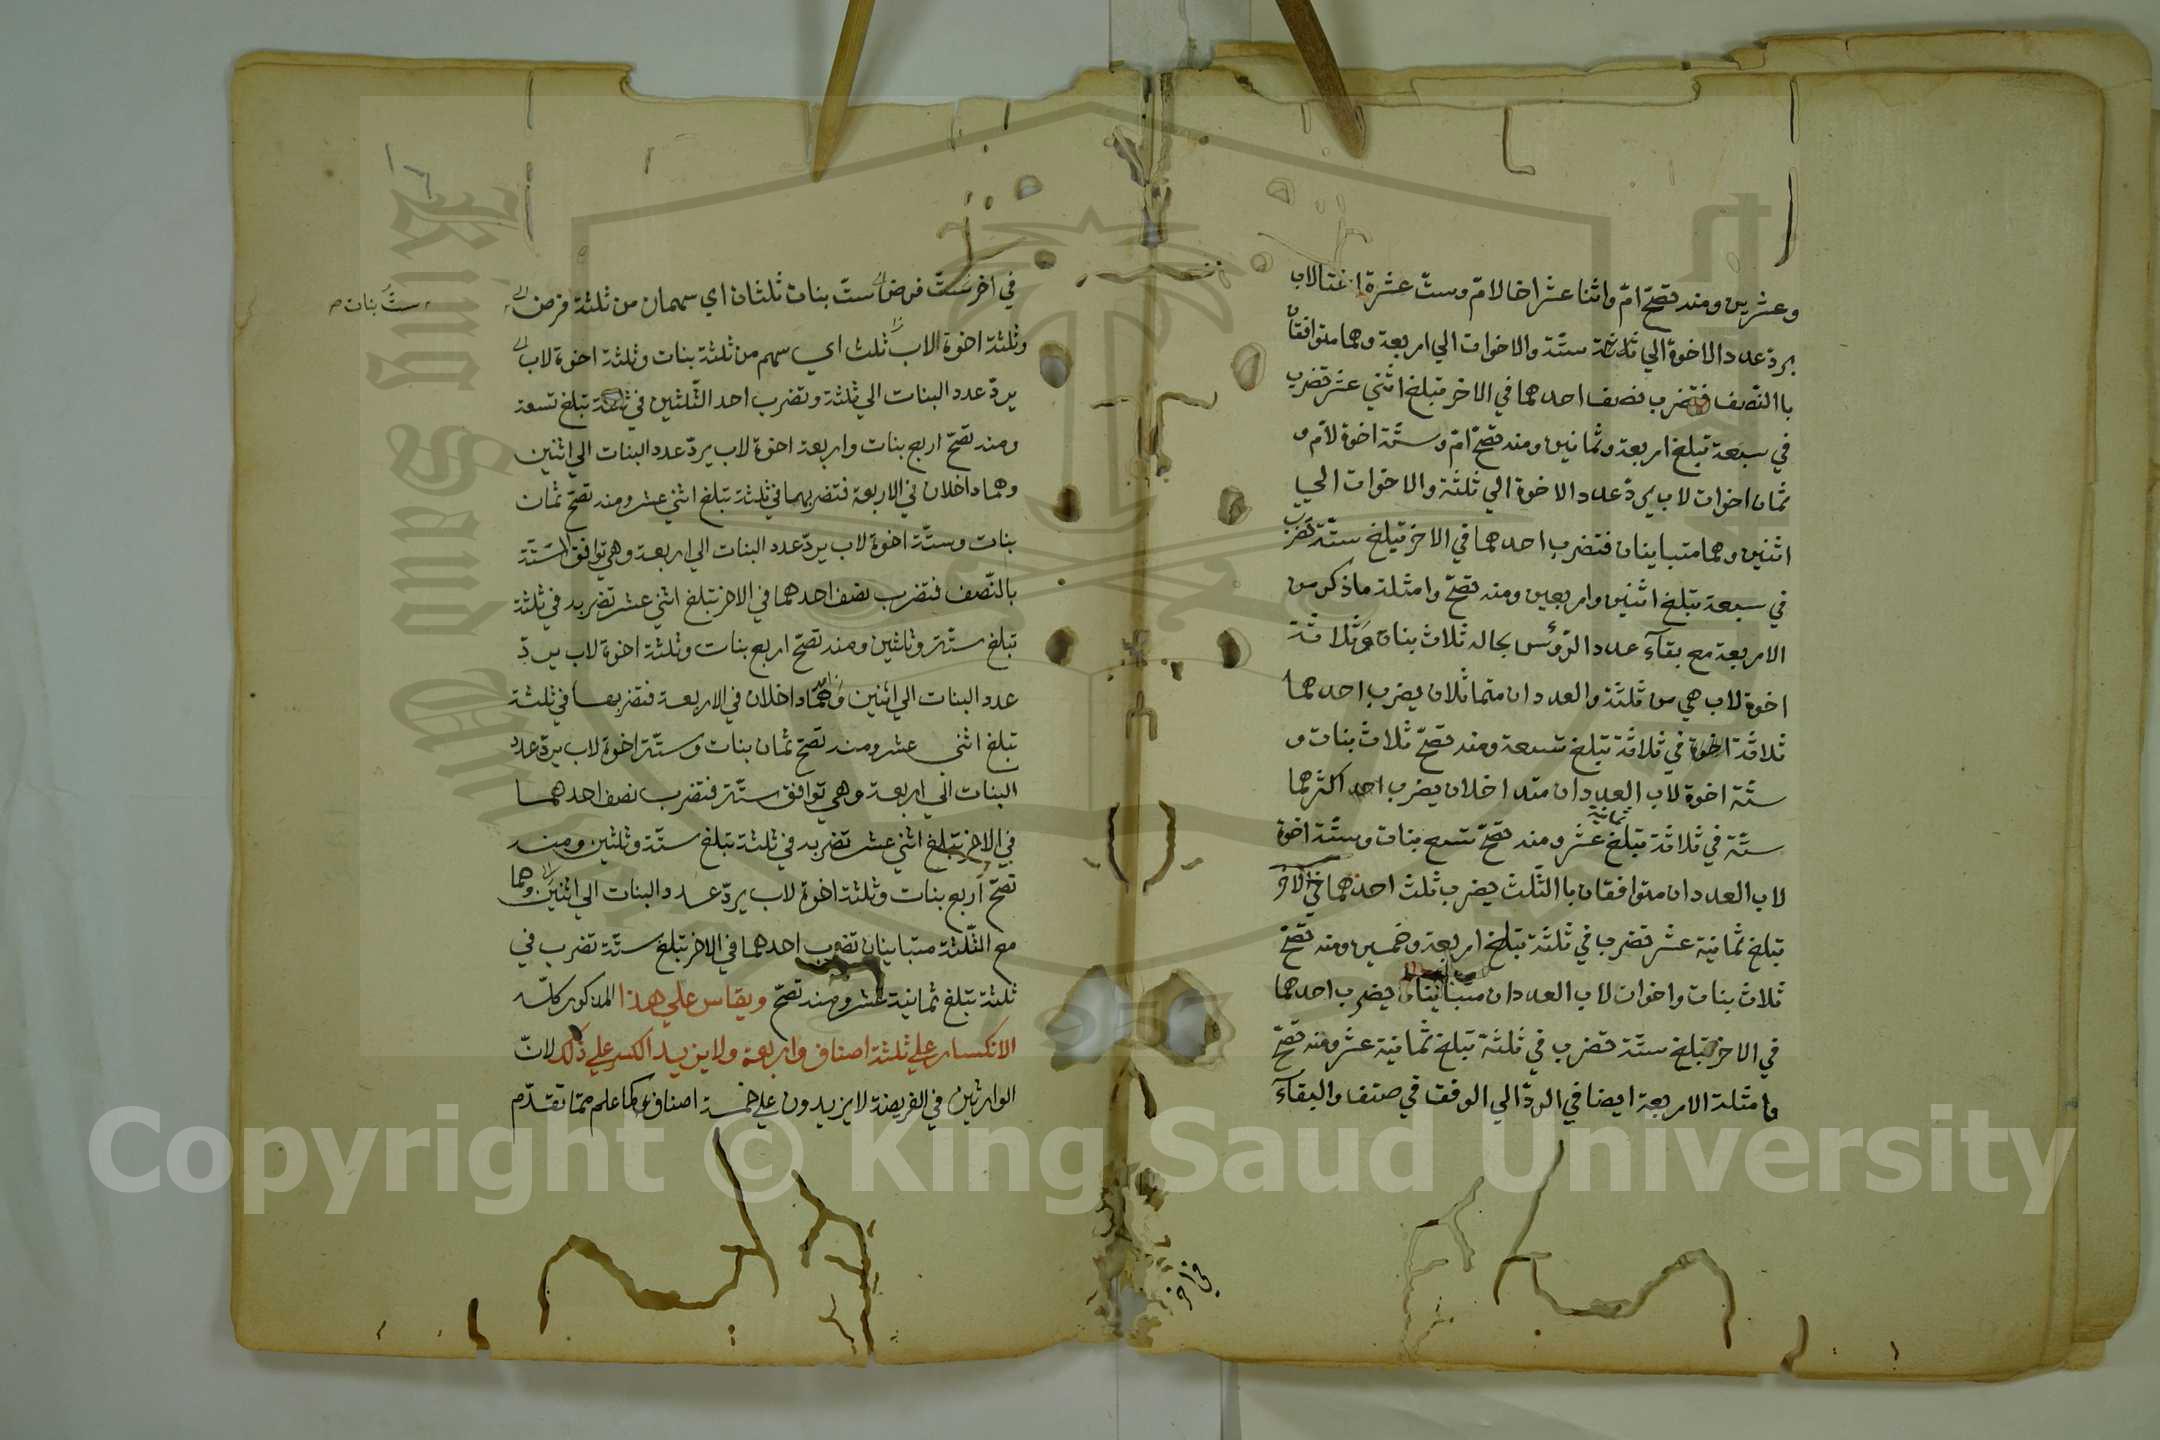 وعشرين ومنه تصحّ امّ واثنا عشر اخا لامّ وستّ عشرة اختا لاب
يردّ عدد الاخوة الي ستّة والاخوات الي اربعة وهما متوافقان
باالنّصف فتضرب نصف احدهما في الاخر تبلغ اثني عشر تضرب
في سبعة تبلغ اربعة وثمانين ومنه تصحّ امّ وستّة اخوة لامّ و
ثمان اخوات لاب يردّ عدد الاخوة الي ثلثة والاخوات الي
اثنين وهما متباينان فتضرب احدهما في الاخر تبلغ ستّة تضرب
في سبعة تبلغ اثنين واربعين ومنه تصحّ وامثلة ماذكر من
الاربعة مع بقآء عدد الرّؤس بحاله ثلاث بنات وثلاثة
اخوة لاب هي من ثلثة والعددان متماثلان يضرب احدهما
ثلاثة في ثلاثة تبلغ تسعة ومنه تصحّ ثلاث بنات و
ستّة اخوة لاب العددان متداخلان يضرب اكثرهما
ستّة في ثلاثة تبلغ ثمانية عشر ومنه تصحّ تسع بنات وستّة اخوة
لاب العددان متوافقان باالثّلث يضرب ثلث احدهما في الاخر
تبلغ ثمانية عشر تضرب في ثلثة تبلغ اربعة وخمسين ومنه تصحّ
ثلاث بنات واخوان لاب العددان متباينان يضرب احدهما
في الاخر تبلغ ستّة تضرب في ثلثة تبلغ ثمانية عشر ومنه تصحّ
وامثلة الاربعة ايضا في الردّ الي الوفق في صنف والبقآء
في اخر
في اخر ستّ بنات ثلثان اي سهمان من ثلثة فرض
ستّ بنات
وثلثة اخوة لاب ثلث اي سهم من ثلثة بنات وثلثة اخوة لاب
يردّ عدد البنات الي ثلثة وتضرب احد الثّلثين في ثلثة تبلغ تسعة
ومنه تصحّ اربع بنات واربعة اخوة لاب يردّ عدد البنات الي اثنين
وهما داخلان في الاربعة فتضربهما في ثلثة تبلغ اثني عشر ومنه تصحّ ثمان
بنات وستّة اخوة لاب يردّ عدد البنات الي اربعة وهي توافق السّتّة
بالنّصف فتضرب نصف احدهما في الاخر تبلغ اثني عشر تضربه في ثلثة
تبلغ ستّة وثلثين ومنه تصحّ اربع بنات وثلثة اخوة لاب يردّ
عدد البنات الي اثنين وهما داخلان في الاربعة فتضربها في ثلثة
تبلغ اثني عشر ومنه تصحّ ثمان بنات وستّة اخوة لاب يردّ عدد
البنات الي اربعة وهي توافق ستّة فتضرب نصف احدهما
في الاخر تبلغ اثني عشر تضربه في ثلثة تبلغ ستّة وثلثين ومنه
تصحّ اربع بنات وثلثة اخوة لاب يردّ عدد البنات الي اثنين وهما
مع الثّلثة متباينان تضرب احدهما في الاخر تبلغ ستّة تضرب في
ثلثة تبلغ ثمانية عشر ومنه تصحّ ويقاس علي هذا المذكور كلّه
الانكسار علي ثلثة اصناف واربعة ولا يزيد الكسر علي ذلك لانّ
الوارثين في الفريضة لا يزيدون علي خمسة اصناف كما علم ممّا تقدّم
Copyright © King Saud University